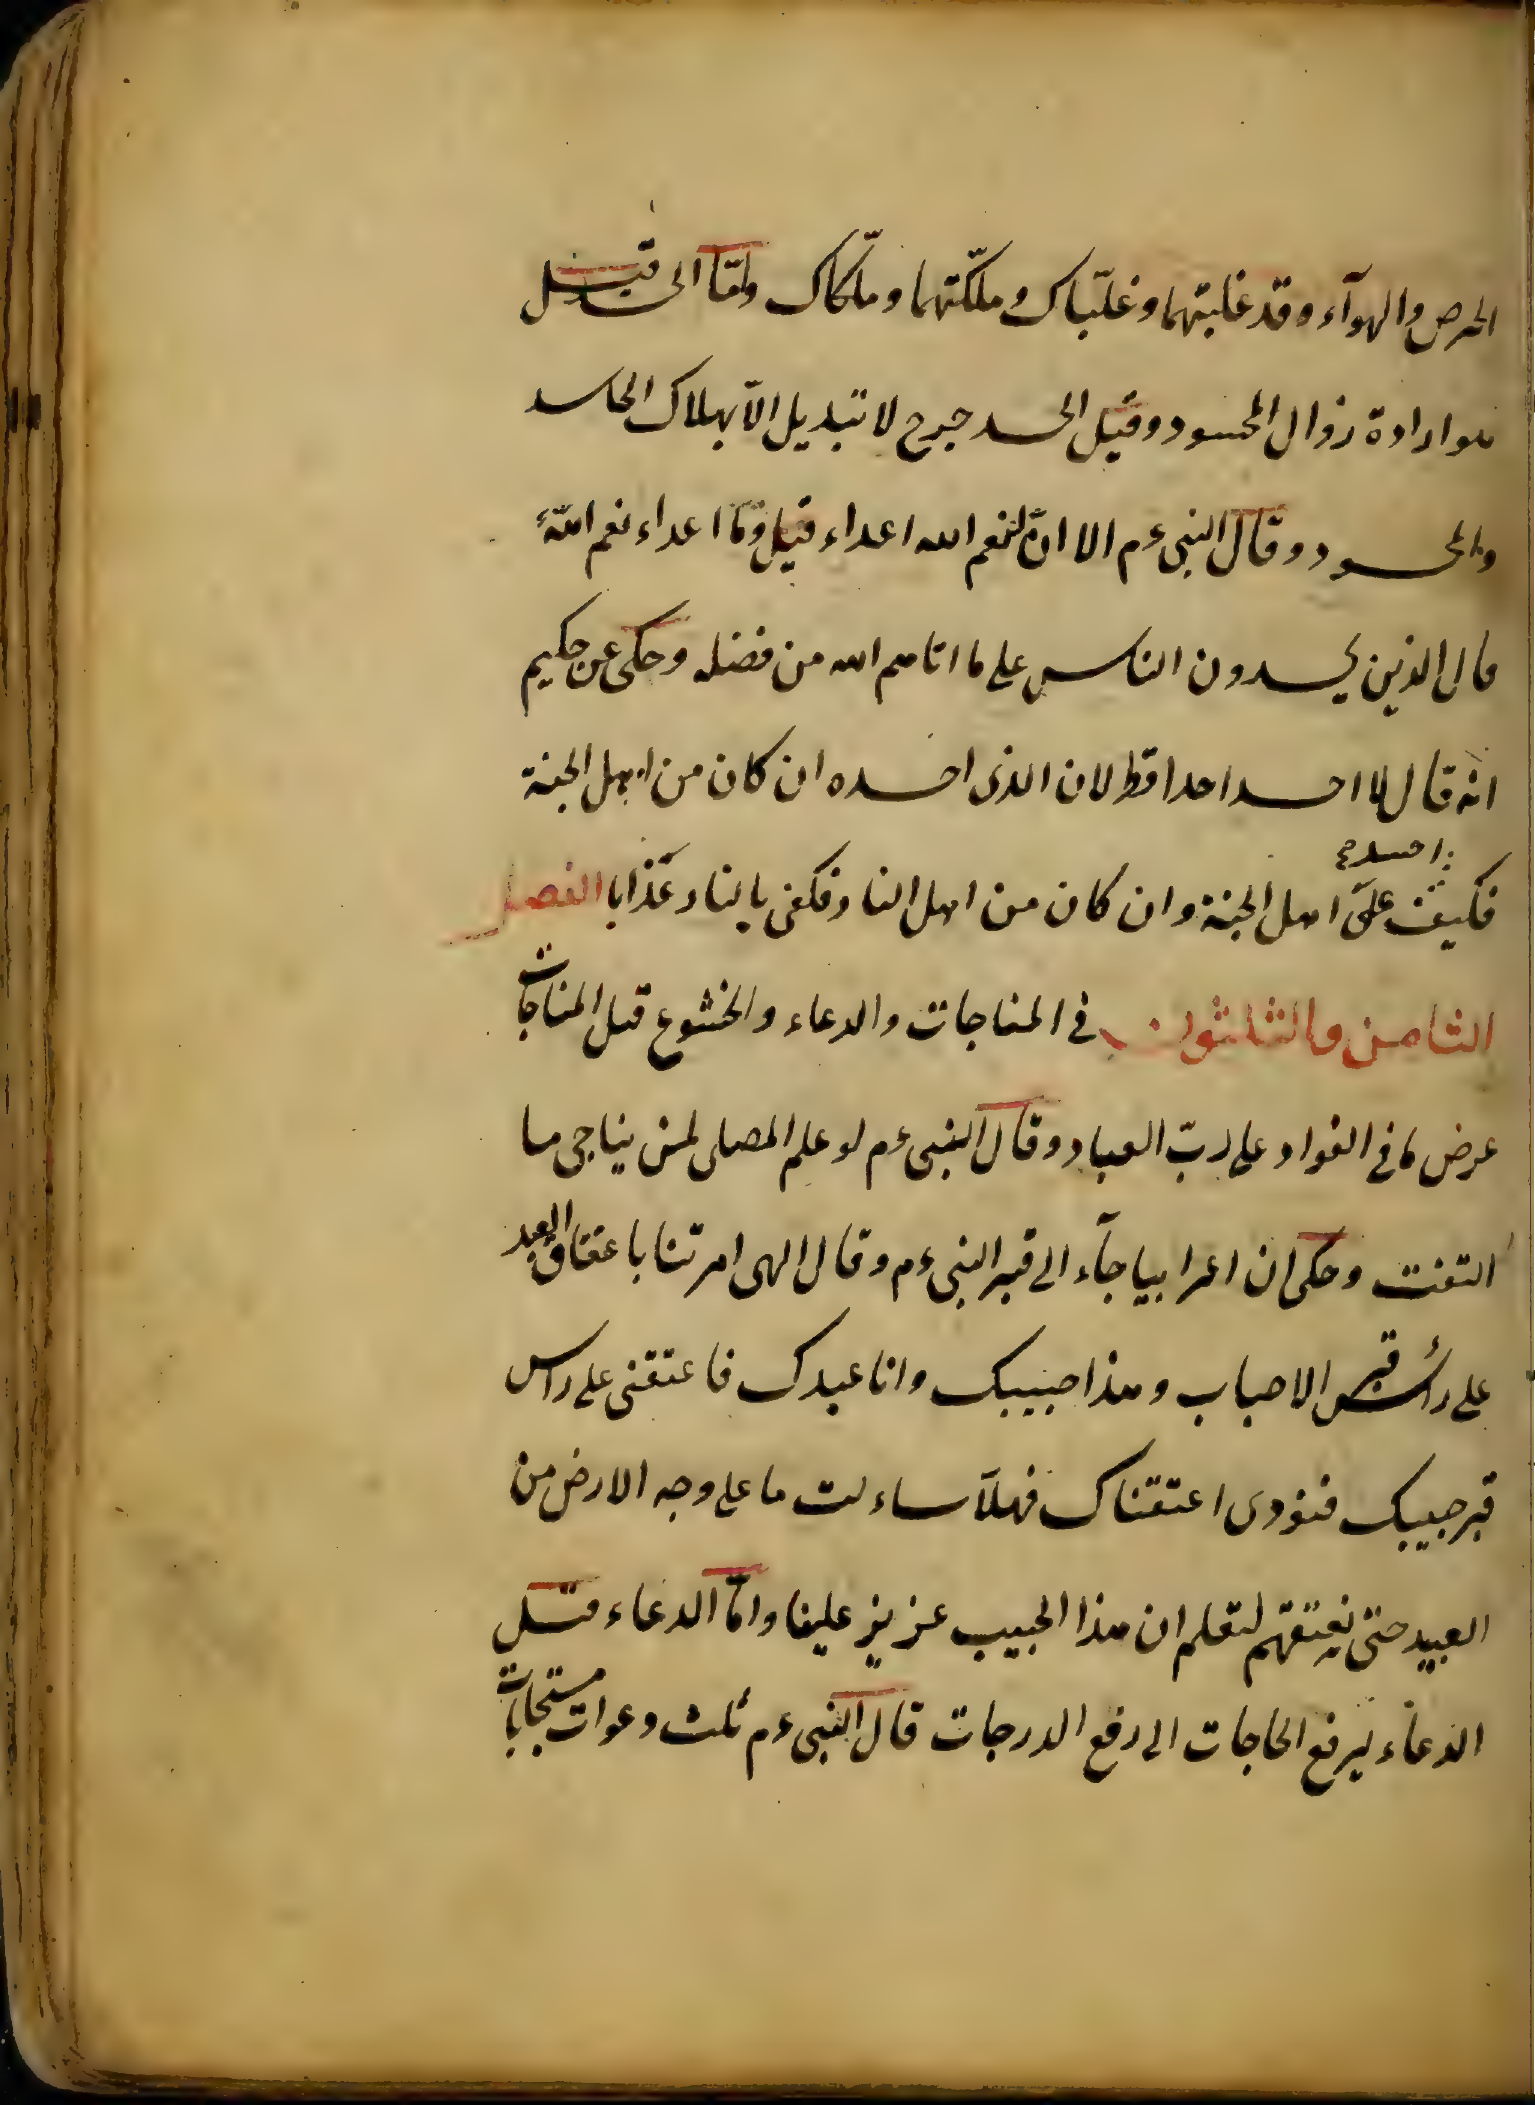 الحرص والهوآء وقد غلبتهما وغلّباك وملكّتهما وملّكاك وامّا الحسد فقيل
هو ارادة زوال المحسود وقيل الحسد جرح لا تبديل الّا بهلاك الحاسد
والمحسود وقال النبى ءم الا انّ لنعم الله اعداء قيل وما اعداء نعم اللّه
قال الذين يحسدون الناس على ما اتاهم الله من فضله وحكى عن حكيم
انه قال لا احسد احدا قط لان الذى احسده ان كان من اهل الجنة
فكيف احسد على اهل الجنة وان كان من اهل النار فكفى بالنار عذابا الفصل
الثامن والثلثون فى المناجات والدعاء والخشوع قيل المناجات
عرض ما فى الفواد على ربّ العباد وقال النبى ءم لو علم المصلى لمن يناجى ما
التفت وحكى ان اعرابيا جآء الى قبر النبى ءم وقال الهى امرتنا باعتاق العبيد
على رأس قبر الاحباب وهذا حبيبك وانا عبدك فاعتقنى على راس
قبر حبيبك فنودى اعتقناك فهلّا ساءلت ما على وجه الارض من
العبيد حتى نعتقهم لتعلم ان هذا الحبيب عزيز علينا وامّا الدعاء فقيل
الدعاء يرفع الحاجات الى رفع الدرجات قال النبى ءم ثلث دعوات مستجابات